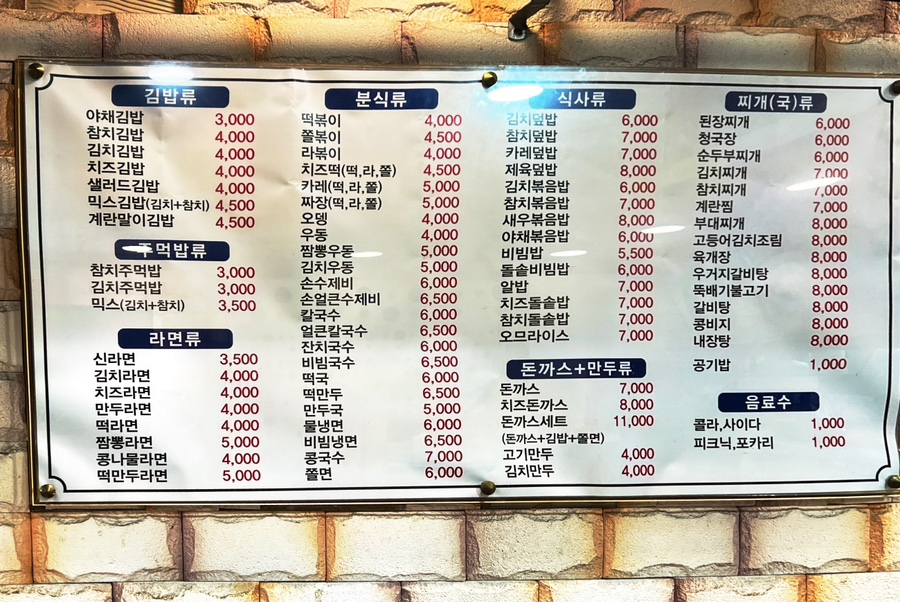 김밥류
야채김밥 3,000
참치김밥 4,000
김치김밥 4,000
치즈김밥 4,000
샐러드김밥 4,000
믹스김밥(김치+참치) 4,500
계란말이김밥 4,500
주먹밥류
참치주먹밥 3,000
김치주먹밥 3,000
믹스(김치+참치) 3,500
라면류
신라면 3,500
김치라면 4,000
치즈라면 4,000
만두라면 4,000
떡라면 4,000
짬뽕라면 5,000
콩나물라면 4,000
떡만두라면 5,000
분식류
떡볶이 4,000
쫄볶이 4,500
라볶이 4,000
치즈떡(떡,라,쫄) 4,500
카레(떡,라,쫄) 5,000
짜장(떡,라,쫄) 5,000
오뎅 4,000
우동 4,000
짬뽕우동 5,000
김치우동 5,000
손수제비 6,000
손얼큰수제비 6,500
칼국수 6,000
얼큰칼국수 6,500
잔치국수 6,000
비빔국수 6,500
떡국 6,000
떡만두 6,500
만두국 5,000
물냉면 6,000
비빔냉면 6,500
콩국수 7,000
쫄면 6,000
식사류
김치덮밥 6,000
참치덮밥 7,000
카레덮밥 7,000
제육덮밥 8,000
김치볶음밥 6,000
참치볶음밥 7,000
새우볶음밥 8,000
야채볶음밥 6,000
비빔밥 5,500
돌솥비빔밥 6,000
알밥 7,000
치즈돌솥밥 7,000
참치돌솥밥 7,000
오므라이스 7,000
돈까스+만두류
돈까스 7,000
치즈돈까스 8,000
돈까스세트 11,000
(돈까스+김밥+쫄면)
고기만두 4,000
김치만두 4,000
찌개(국)류
된장찌개 6,000
청국장 6,000
순두부찌개 6,000
김치찌개 7,000
참치찌개 7,000
계란찜 7,000
부대찌개 8,000
고등어김치조림 8,000
육개장 8,000
우거지갈비탕 8,000
뚝배기불고기 8,000
갈비탕 8,000
콩비지 8,000
내장탕 8,000
공기밥 1,000
음료수
콜라,사이다 1,000
피크닉,포카리 1,000